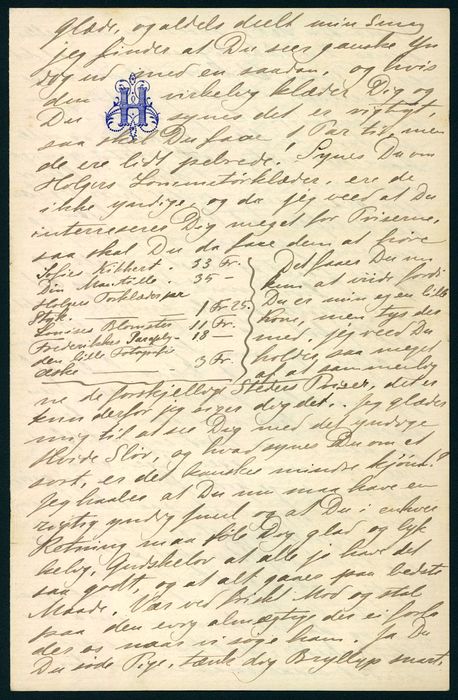 Glæde, og aldels deelt min Smag
jeg finder at Du seer ganske yn
dig ud med en saadan, og hvis
den virkelig klæder Dig og
Du H synes det er rigtigt,
saa skal Du faae Par til, men
de ere lidt Synes Du om
Holgers Lommetørklæder, ere de
ikke yndige, og da jeg veed at Du
interreseres Dig meget for Priserne,
saa skal Du da faae dem at høre
Sofies Kibbert. 33 Fr.
Din Mantille. 35 —
Holgers Forklæder par
Styk. 1 Fr 25.
Louises Blomster 11 Fr.
Frederikkes Parapły. 18 —
den lille Fotografi
æske 3 Fr.
Det faaer Du nu
kun at vide fordi
Du er min egen lille
Kone, men tys der
med, jeg veed Du
holder saa meget
af at sammenlig
ne de forskjellige Steders Priser, det er
kun derfor jeg siger dig det. Jeg glæder
mig til at see Dig med det yndige
Hvide Slør, og hvad synes Du om et
sort, er det kanskee mindre kjønt?
Jeg haaber at Du nu maa have en
rigtig yndig Juul og at Du i enhver
Retning maa føle Dig glad og lyk
kelig, Gudskelov at alle jo have det
saa godt, og at alt gaaer paa bedste
Maade. Vær ved friskt Mod og stol
paa den evig almægtige der ei forla
der os naar vi søge ham. Ja Du
Du søde Pige, tænk dig Bryllup snart,